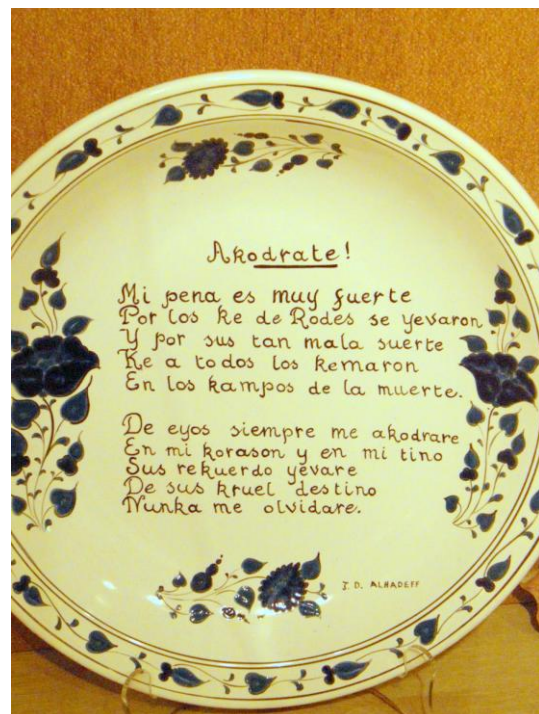 Akodrate!
Mi pena es muy fuerte
Por los ke de Rodes se yevaron
Y por sus tan mala suerte
Ke a todos los kemaron
En los kampos de la muerte.
De eyos siempre me akodrare
En mi korason y en mi tino
Sus rekuerdo yevare
De sus kruel destino
Nunka me olvidare.
J. D. ALHADEFF